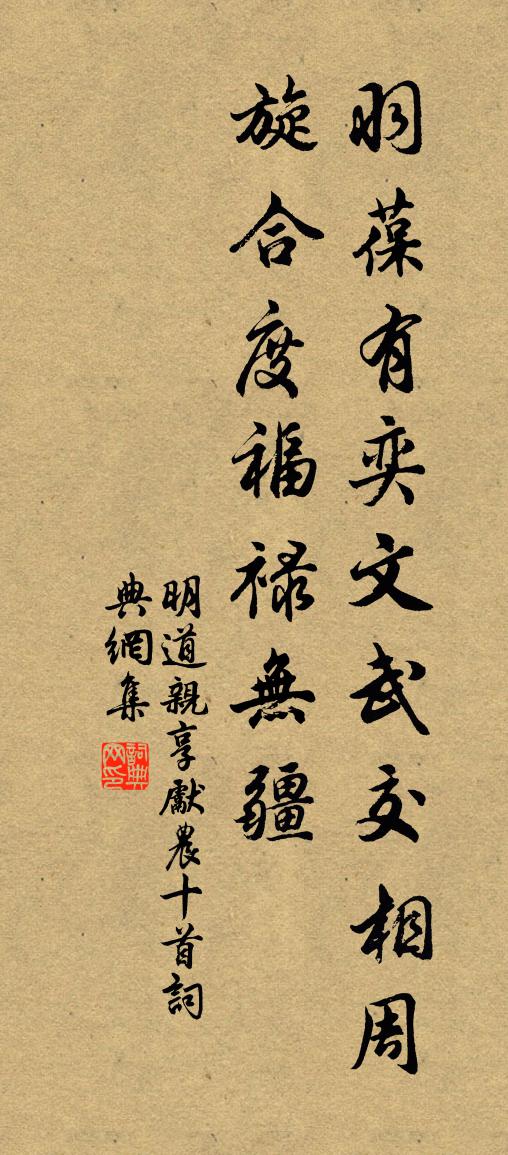 羽葆有奕文武交相周
旋合度福禄無疆
明道親享獻農十首詞
典網集
詞典网印